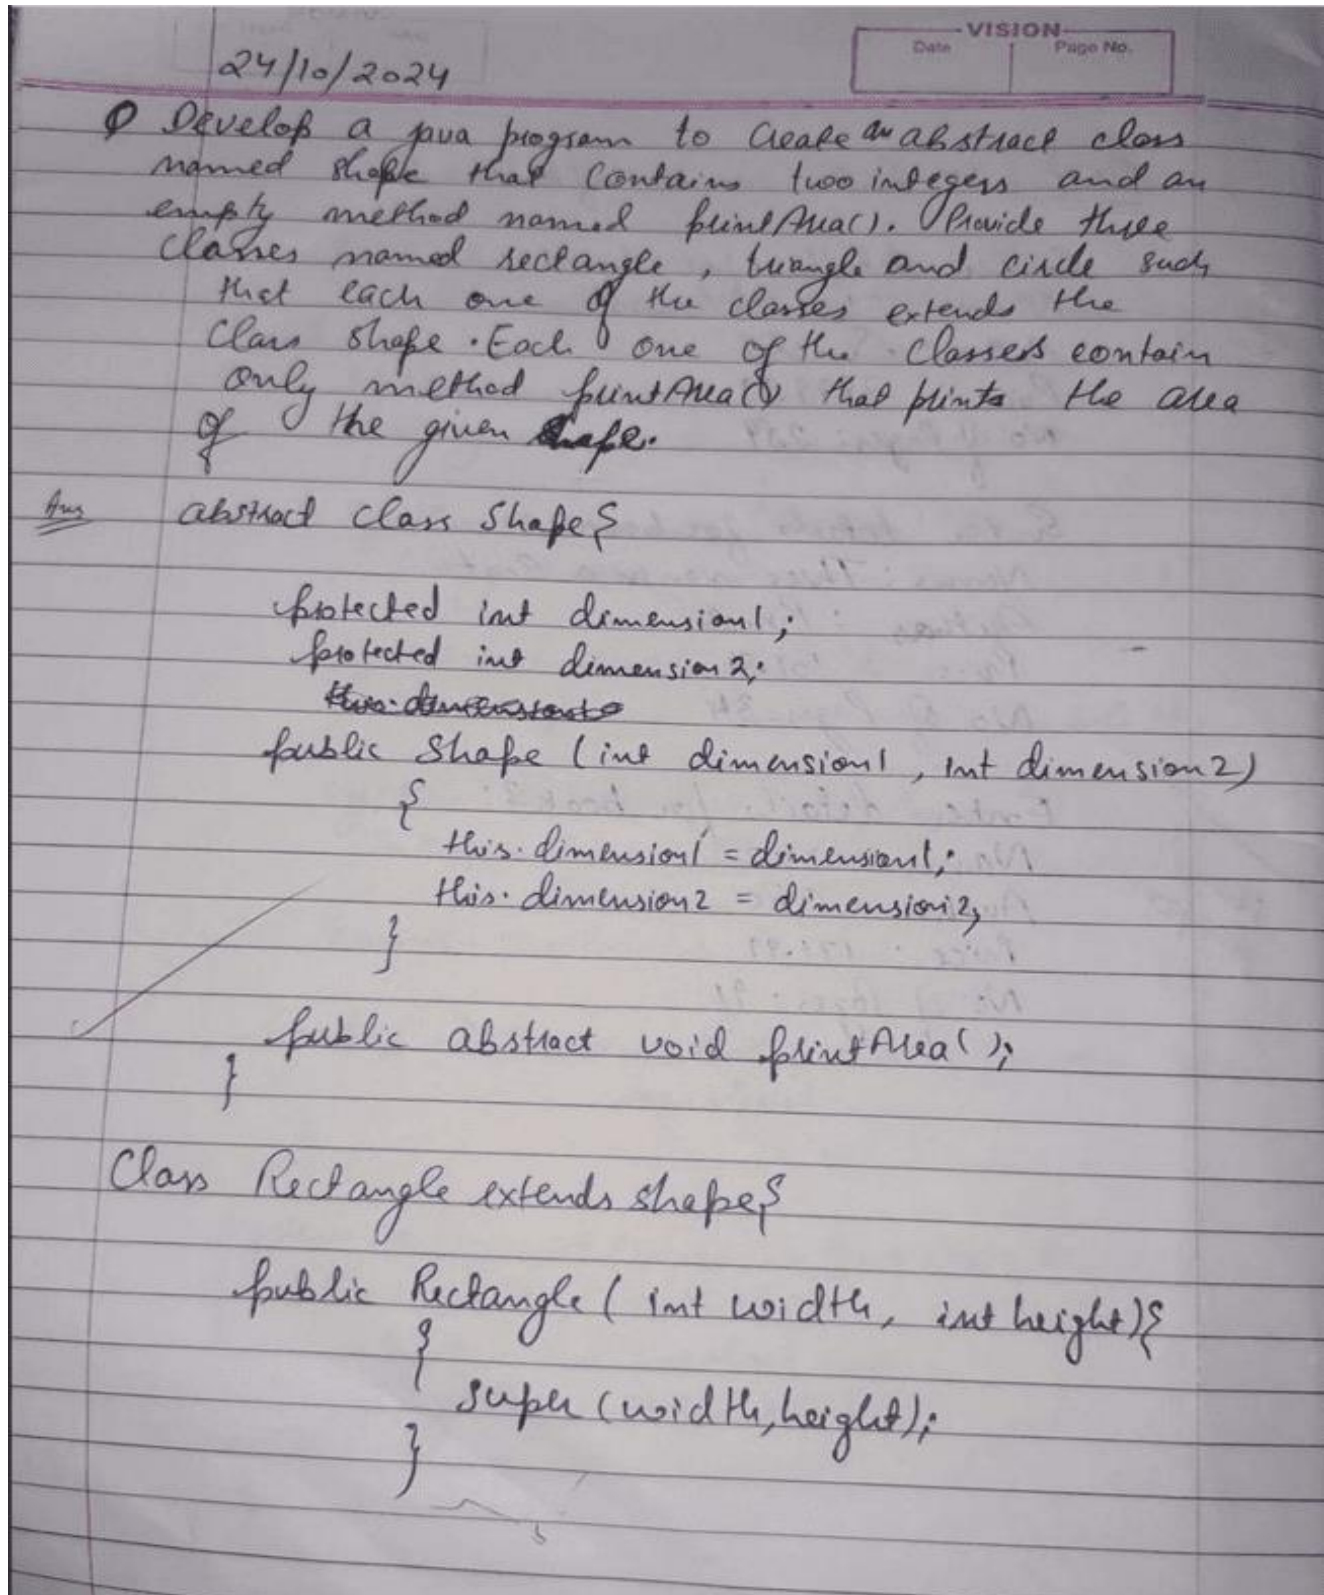 VISION
Date Page No.
24/10/2024
Q Develop a java program to create an abstract class
named shape that contains two integers and an
empty method named printArea(). Provide three
classes named rectangle, triangle and circle such
that each one of the classes extends the
class shape. Each one of the classes contain
only method printArea() that prints the area
of the given shape.
Ans abstract class Shape{
protected int dimension1;
protected int dimension2;
public Shape (int dimension1, int dimension2)
{
this.dimension1 = dimension1;
this.dimension2 = dimension2;
}
public abstract void printArea();
}
Class Rectangle extends shape{
public Rectangle (int width, int height){
{
super (width, height);
}